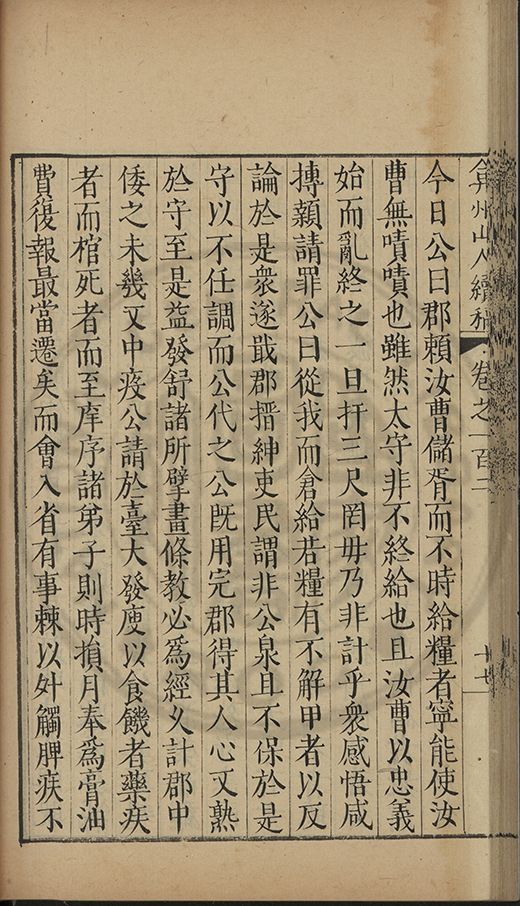 弇州山人續稿 卷之一百二 十七
今日公曰郡賴汝曹儲胥而不時給糧者寧能使汝
曹無嘖嘖也雖然太守非不終給也且汝曹以忠義
始而亂終之一旦扞三尺罔毋乃非計乎衆感悟咸
摶顙請罪公曰從我而倉給若糧有不解甲者以反
論於是衆遂戢郡搢紳吏民謂非公泉且不保於是
守以不任調而公代之公既用完郡得其人心又熟
於守至是益發舒諸所擘畫條教必爲經久計郡中
倭之未幾又中疫公請於臺大發廋以食饑者藥疾
者而棺死者而至庠序諸弟子則時損月奉爲膏油
費復報最當遷矣而會入省有事棘以外觸脾疾不